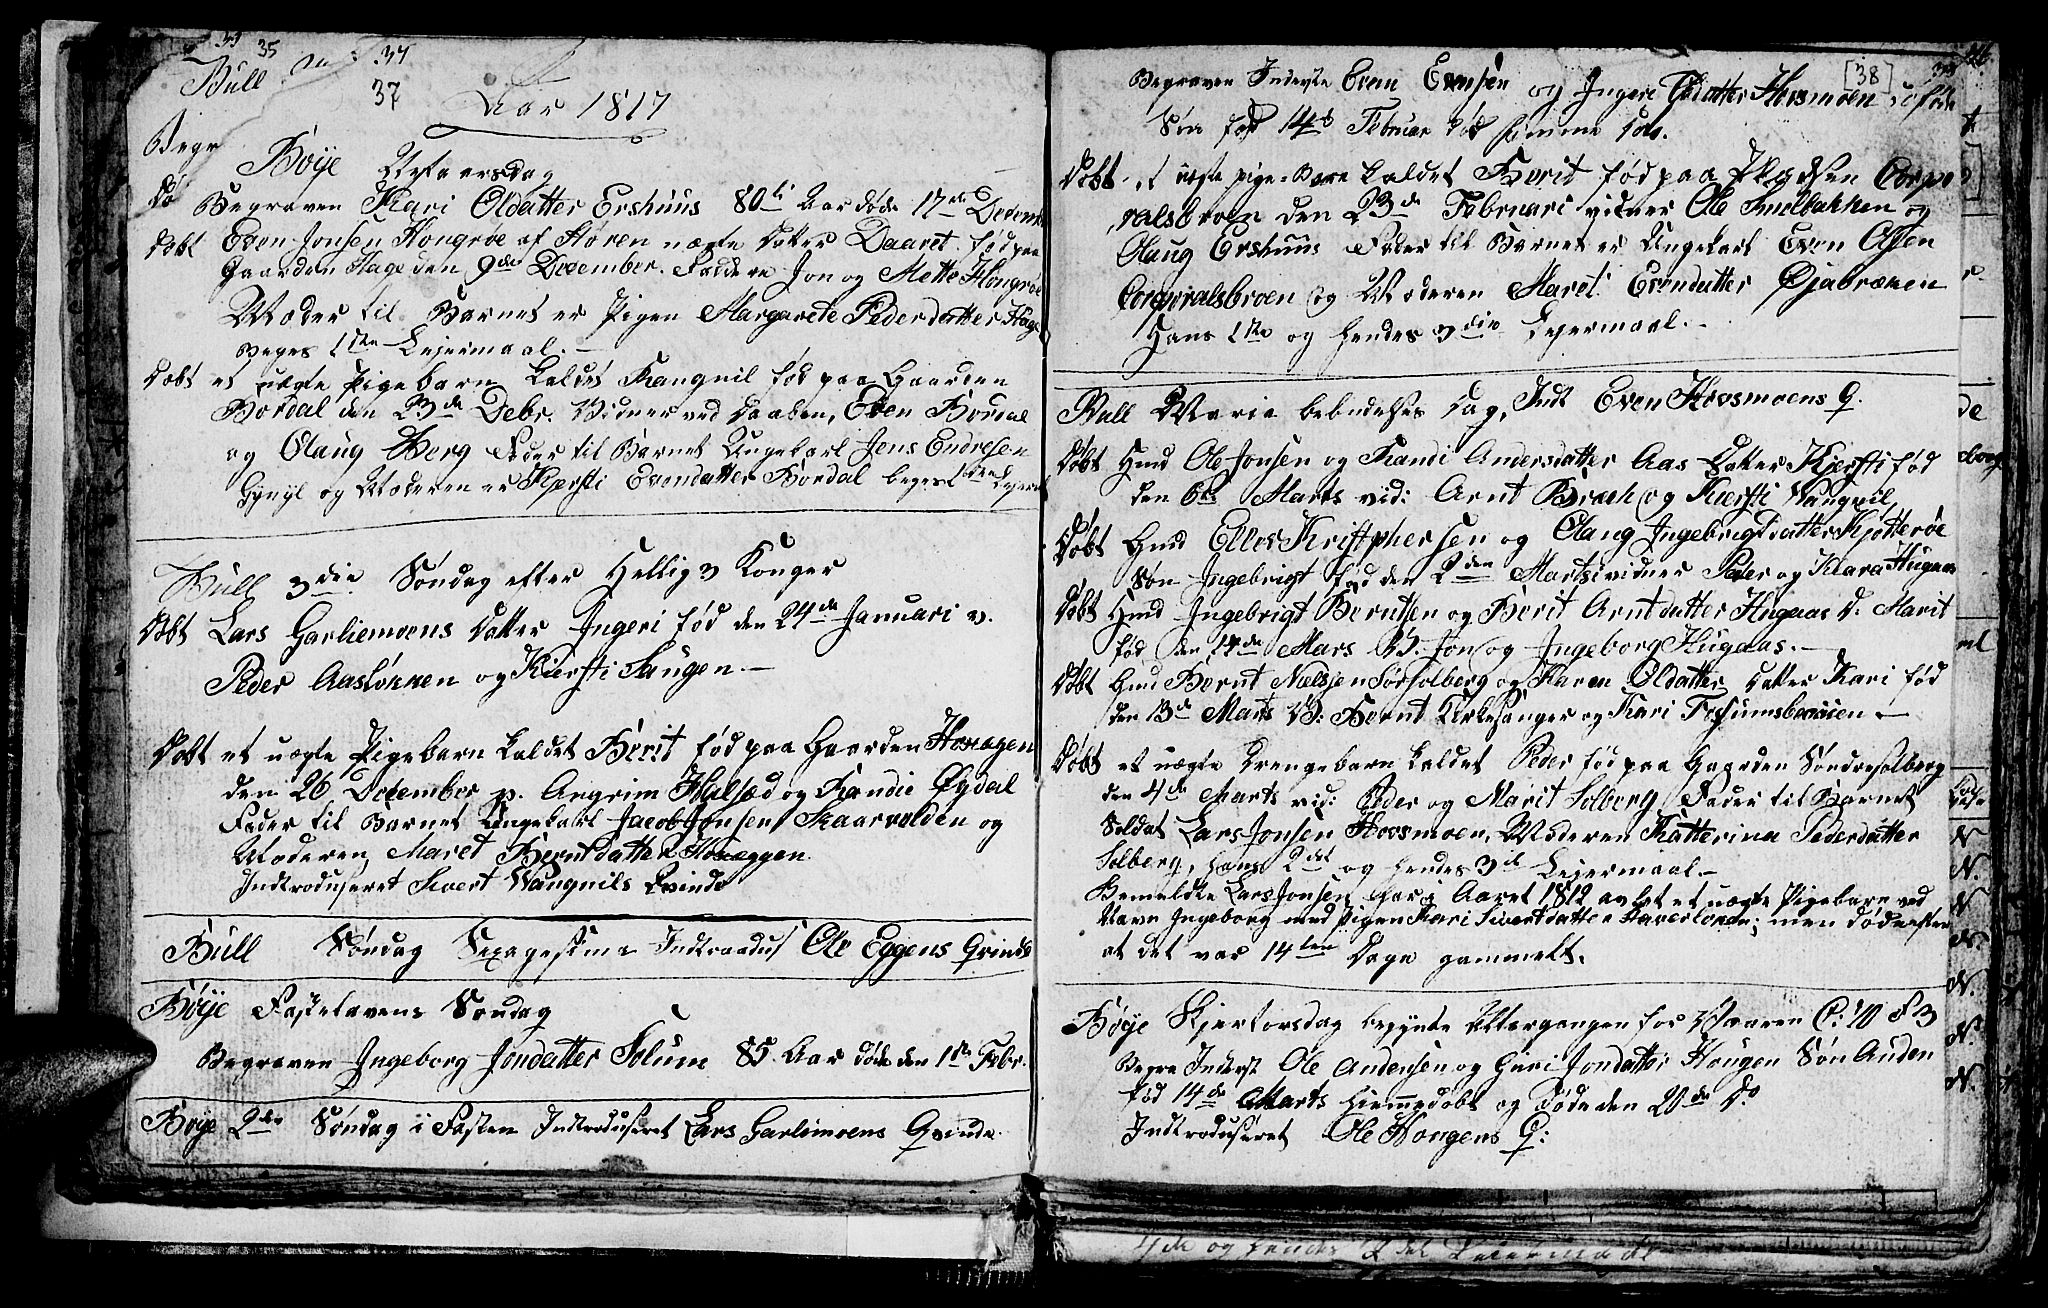 35 34
Bull
37 Aar 1817
Begr
Böÿe Nytaarsdag
Dö Begraven Kari Oldatter Ershuus 80ti Aar döde 17de Decemb
Döbt Even Jonsen Hongröe af Hören uægte Datter Daaret född paa
Gaarden Hage den 9de December. Faddere Jon og Mette Hongröe
Moder til Barnet er Pigen Margarete Pederdatter Hage
Beges 1ste Lejermaal.
Döbt et uægte Pigebarn kaldet Rangnil föd paa Gaarden
Bordal den 23de Debr. Vidner ved Daaben, Even Bordal
og Olaug Berg Fader til Barnet Ungekarl Jens Endresen
og Moderen er Kjersti Evendatter Bordal beges 1ste Lejerm
Bull 3die Söndag efter Hellig 3 Konger
Döbt Lars Garliemoens Datter Ingeri föd den 24de Januari v.
Peder Aaslökken og Kiersti Haugen.
Döbt et uægte Pigebarn kaldet Berit föd paa Gaarden
den 26 December v. Angrim Halsæd og Randi Öÿdal
Fader til Barnet Ungekarl Jacob Jonsen Skaarvolden og
Moderen Maret Berntdatter Horeggen.
Indtroduseret Sivert Wangnils Kvinde
Bull Söndag Sexagesima Indtroadus Ole Eggens Qvinde
Böÿe Fastelavens Söndag
Begraven Ingeborg Jondatter Solum 85. Aar döde den 1ste Febr.
Böÿe 2den Söndag i Fasten Indtroduseret Lars Garlimoens Qvinde.
[38]
Begraven Inderste Even Evensen og Ingeri Hovsmoen
Sön föd 14de Februar död samme
Döbt et uegte pige-Barn kaldet Berit föd paa Pladsen Corpo
ralsbroen den 23de Februari vidner Ole og
Olaug Ershuus Fader til Barnet er Ungekarl Even Olsen
Corporalsbroen og Moderen Maret Evendatter Øjabrænen
Hans 1ste og hendes 3die Lejermaal.
Bull Maria bebudelses Dag, Indt Even Hovsmoens Q.
Döbt Hmd Ole Jonsen og Randi Andersdatter Aas Datter Kjersti föd
den 6te Marts vid: Arnt Bræk og Kiersti Vangnil
Döbt Hmd Ellev Kristphersen og Olaug Ingebrigtdatter Kjötteröe
Sön Ingebrigt föd den 2den Marts vidner Peder og Mara Hugaas
Döbt Hmd Ingebrigt Berntsen og Berit Arntdatter Hugaas D. Marit
föd den 14de Mars V. Jon og Ingeborg Hugaas.
Döbt Hmd Bernt Nielsjen Sörsolberg og Karen Oldatter Datter Kari föd
den 13de Marts V: Bernt Kirkesanger og Kari Fossumsbroien
Döbt et uægte Drengebarn kaldet Peder föd paa Gaarden Söndresolberg
den 4de Marts vid: Peder og Marit Solberg, Fader til Barnet
Soldat Lars Jonsen Hovsmoen, Moderen Katterina Pederdatter
Solberg, hans 2det og hendes 3die Lejermaal.
Bemeldte Lars Jonsen har i Aaret 1812 avlet et uægte Pigebarn ved
Navn Ingeborg med pigen Kari Sivertdatter men döde efter
at det var 14ten Dage gammelt.
Böÿe Skjertorsdag begynte Altergangen for Vaaren C: 40 F 3
Begra Inderst Ole Andersen og Guri Jondatter Hougen Sön Anden
föd 14de Marts hiemmedöbt og döde den 20de Do
Indtroduseret Ole Hongens Q:
4de og hendes 2det Leiermaal